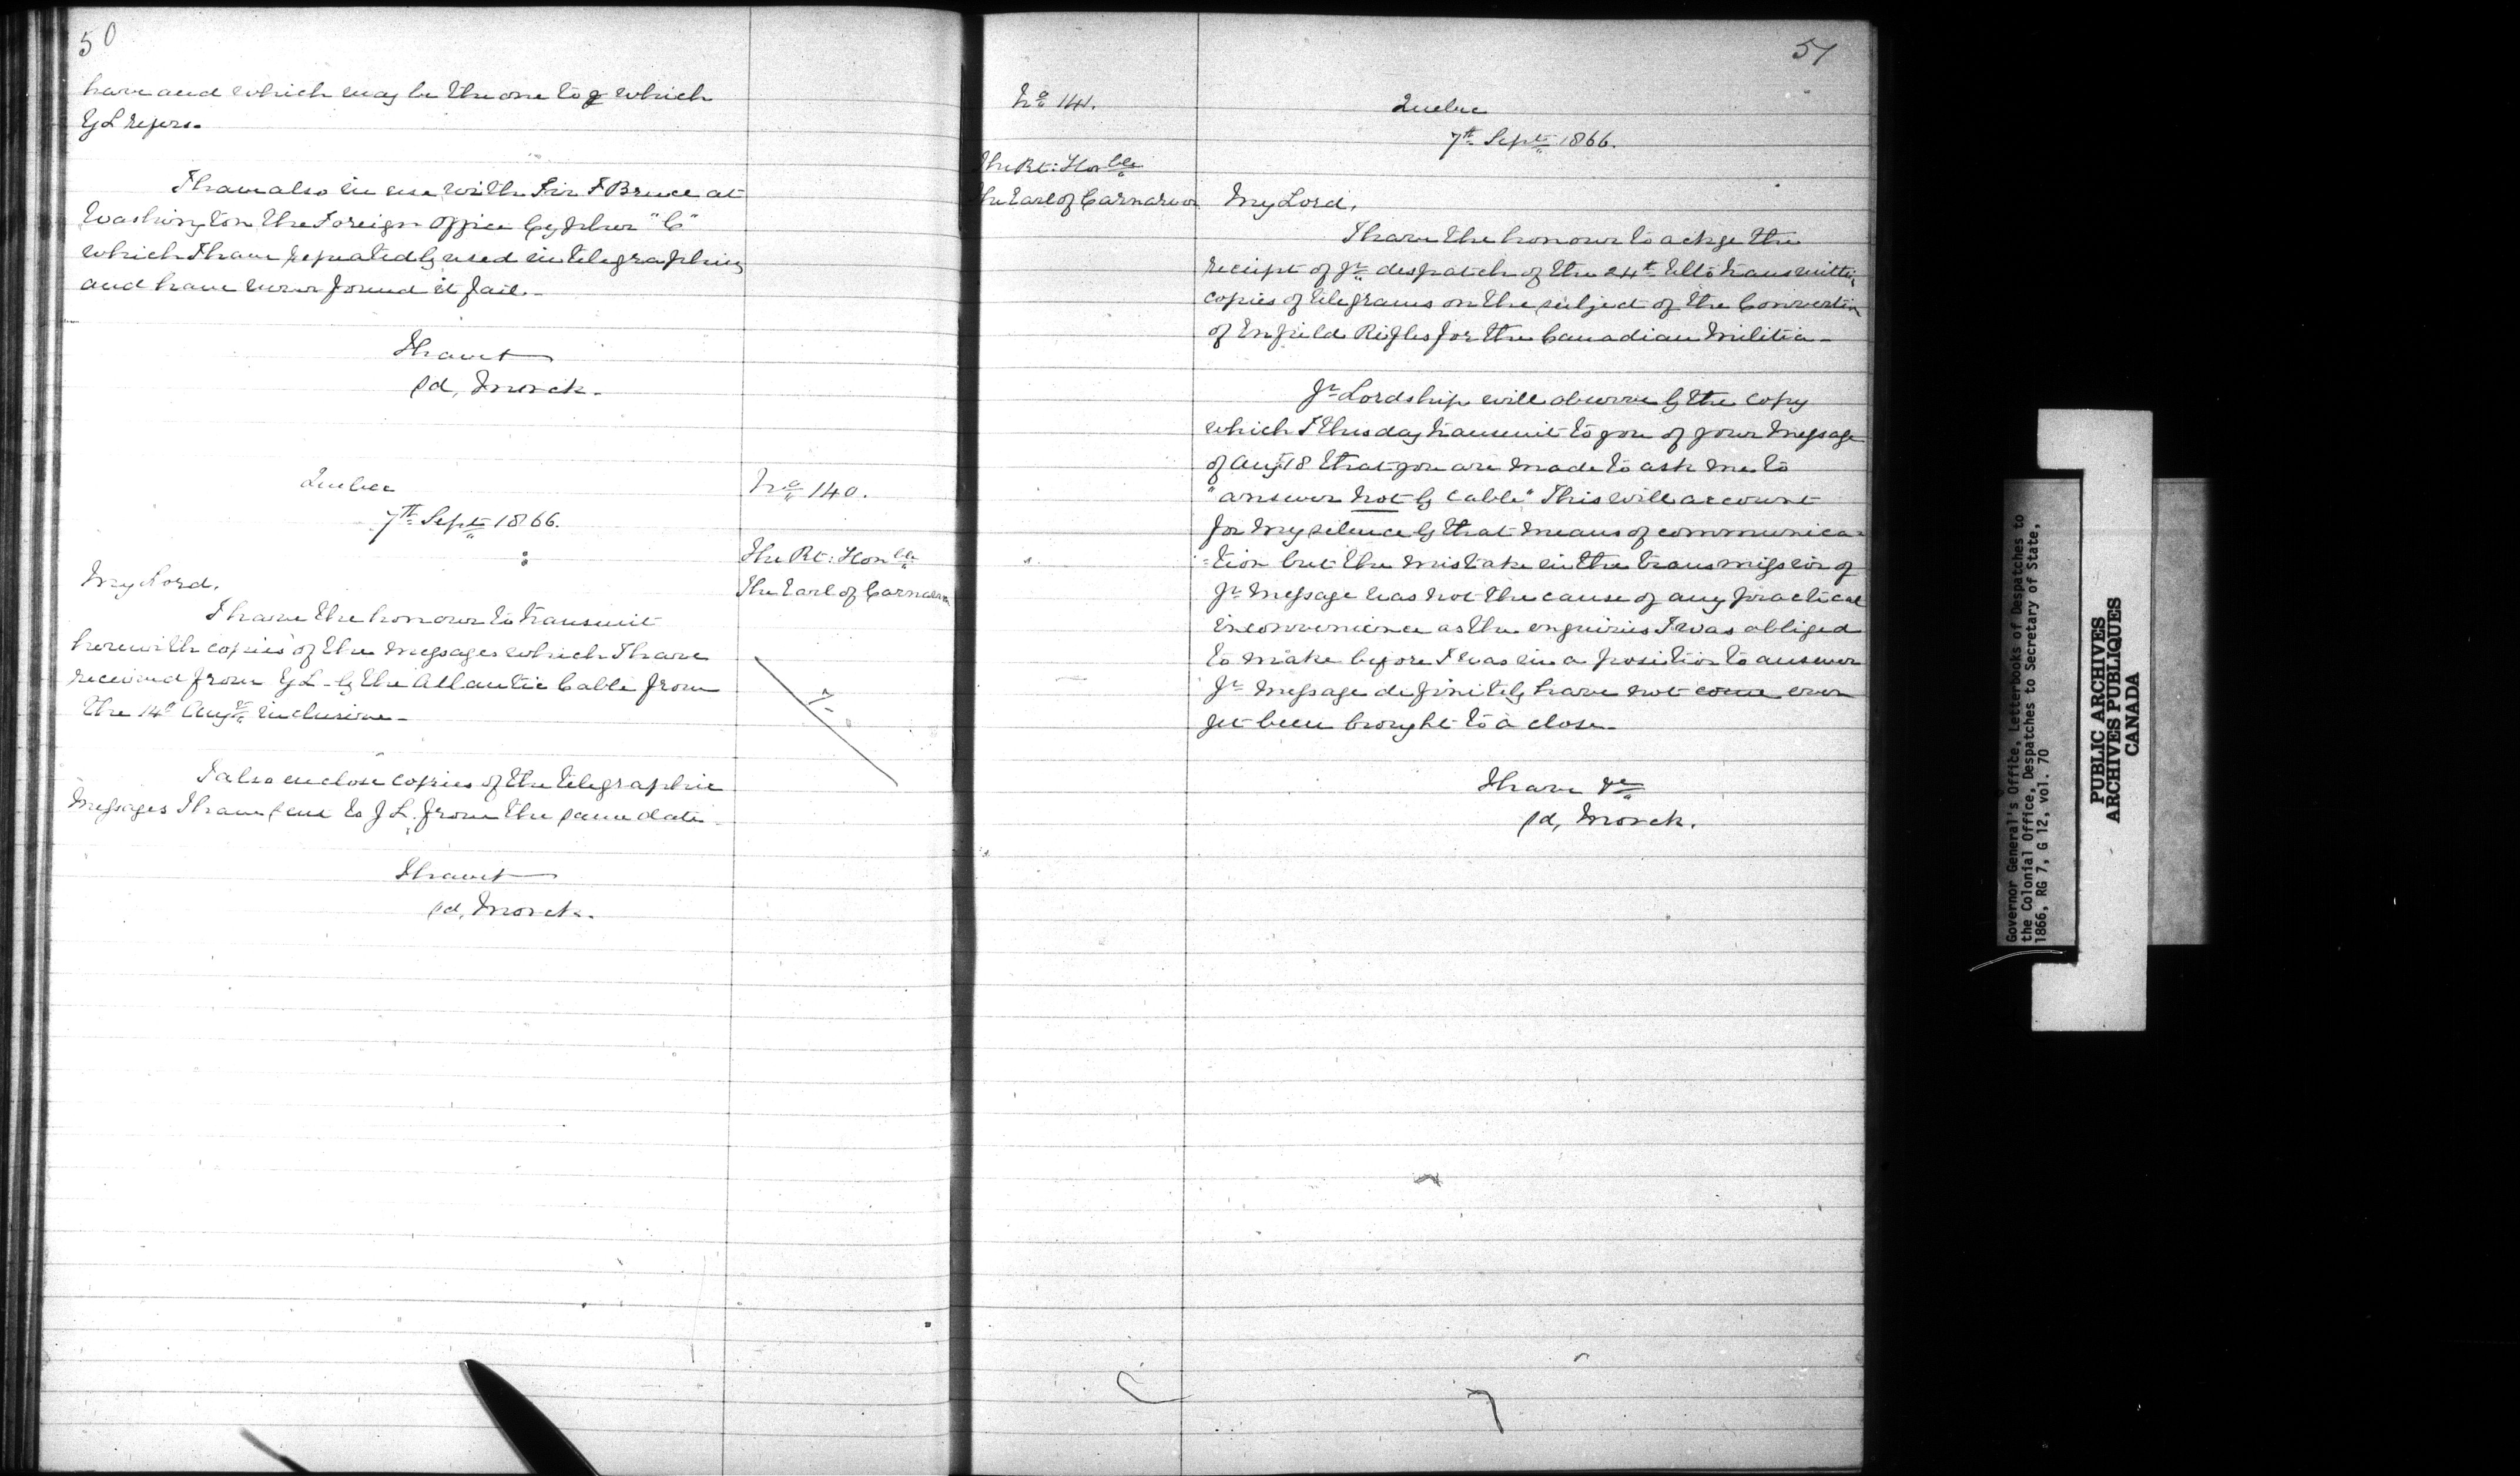 50
have and which may be the one to which
Y L refers.
I have also in use with Sir F Bruce at
Washington the Foreign Office Cypher "C"
which I have repeatedly used in telegraphing
and have never found it fail.
I have &
sd, Monck.
Quebec
7th Sept 1866.
No 140.
The Rt: Honble
The Earl of Carnarvon
My Lord,
I have the honour to transmit
herewith copies of the messages which I have
received from Y L by the Atlantic Cable from
the 14th Augst inclusive -
I also enclose copies of the telegraphic
messages I have sent to Y L. from the same date -
I have &
sd, Monck.
51
No 141.
Quebec
7th Sept 1866.
The Rt: Honble
The Earl of Carnarvon
My Lord,
I have the honour to ackge the
receipt of yr despatch of the 24th Ulto transmitting
copies of telegrams on the subject of the Convertion
of Enfield Rifles for the Canadian Militia -
Yr Lordship will observe by the copy
which I this day transmit to you of your message
of Augt 18 that you are made to ask me to
"answer not by cable" This will account
for my silence by that means of communica-
-tion but the mistake in the transmission of
yr message has not the cause of any practical
inconvenience as the enquiries I was obliged
to make before I was in a position to answer
yr message definitely have not come even
yet been brought to a close.
I have &c
sd, Monck.
Governor General's Office, Letterbooks of Despatches to
the Colonial Office, Despatches to Secretary of State,
1866, RG 7, G 12, vol. 70
PUBLIC ARCHIVES
ARCHIVES PUBLIQUES
CANADA